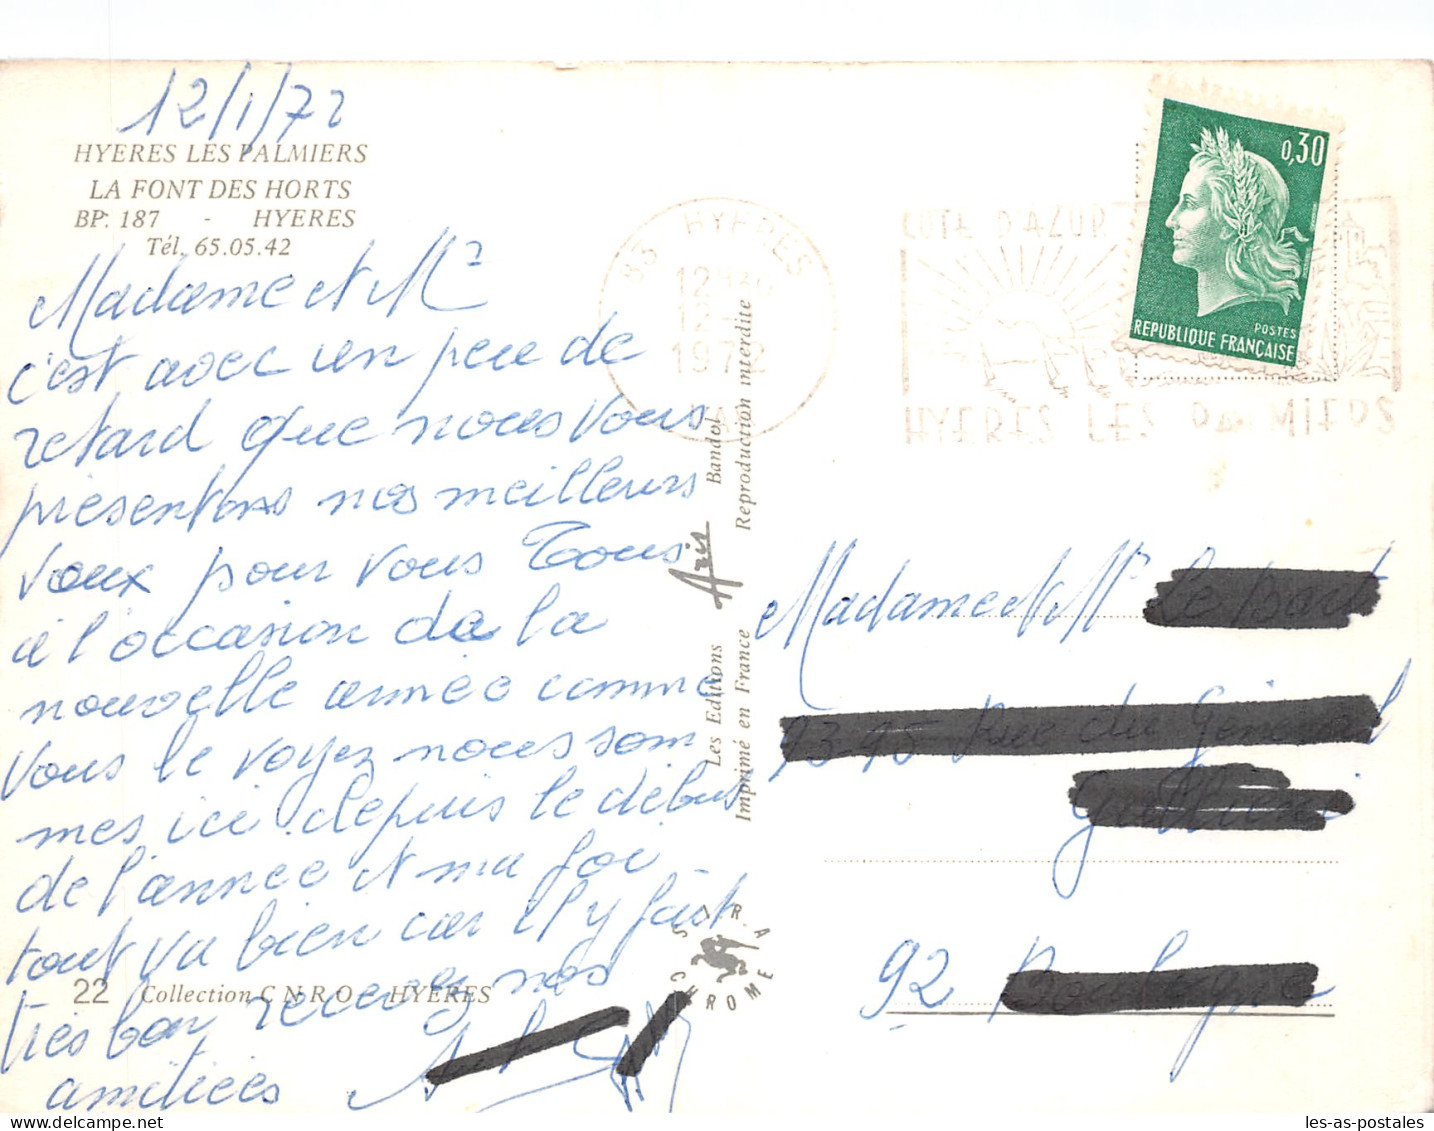 12/1/72
HYERES LES PALMIERS
LA FONT DES HORTS
BP. 187 - HYERES
Tél. 65.05.42
Madame et Mr
c'est avec un peu de
retard que nous vous
présentons nos meilleurs
voeux pour vous Tous
à l'occasion de la
nouvelle année comme
vous le voyez nous som
mes ici depuis le début
de l'année et ma foi
tout va bien car il y fait
très bon recevez nos
amitiées
22 Collection C N R O - HYERES
Les Editions Aris Bandol
Imprimé en France Reproduction interdite
S.I.R.A.
CHROME
83 HYERES
12
1972
VAR
COTE D'AZUR
HYERES LES PALMIERS
0,30
POSTES
REPUBLIQUE FRANÇAISE
Madame et Mr
92
les-as-postales